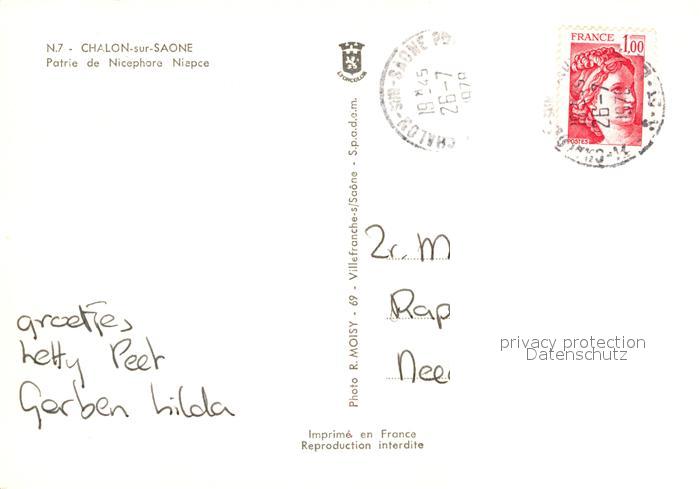 N.7 - CHALON-sur-SAONE
Patrie de Nicephore Niepce
LYONCOLOR
CHALON-SUR-SAONE
19 H 45
26-7
1978
FRANCE
1,00
POSTES
26-7
1978
Photo R. MOISY - 69 - Villefranche-s/Saône - S.p.a.d.e.m.
Zr. M
Rap
Nee
groetjes
hetty Peet
Gerben hilda
privacy protection
Datenschutz
Imprimé en France
Reproduction interdite